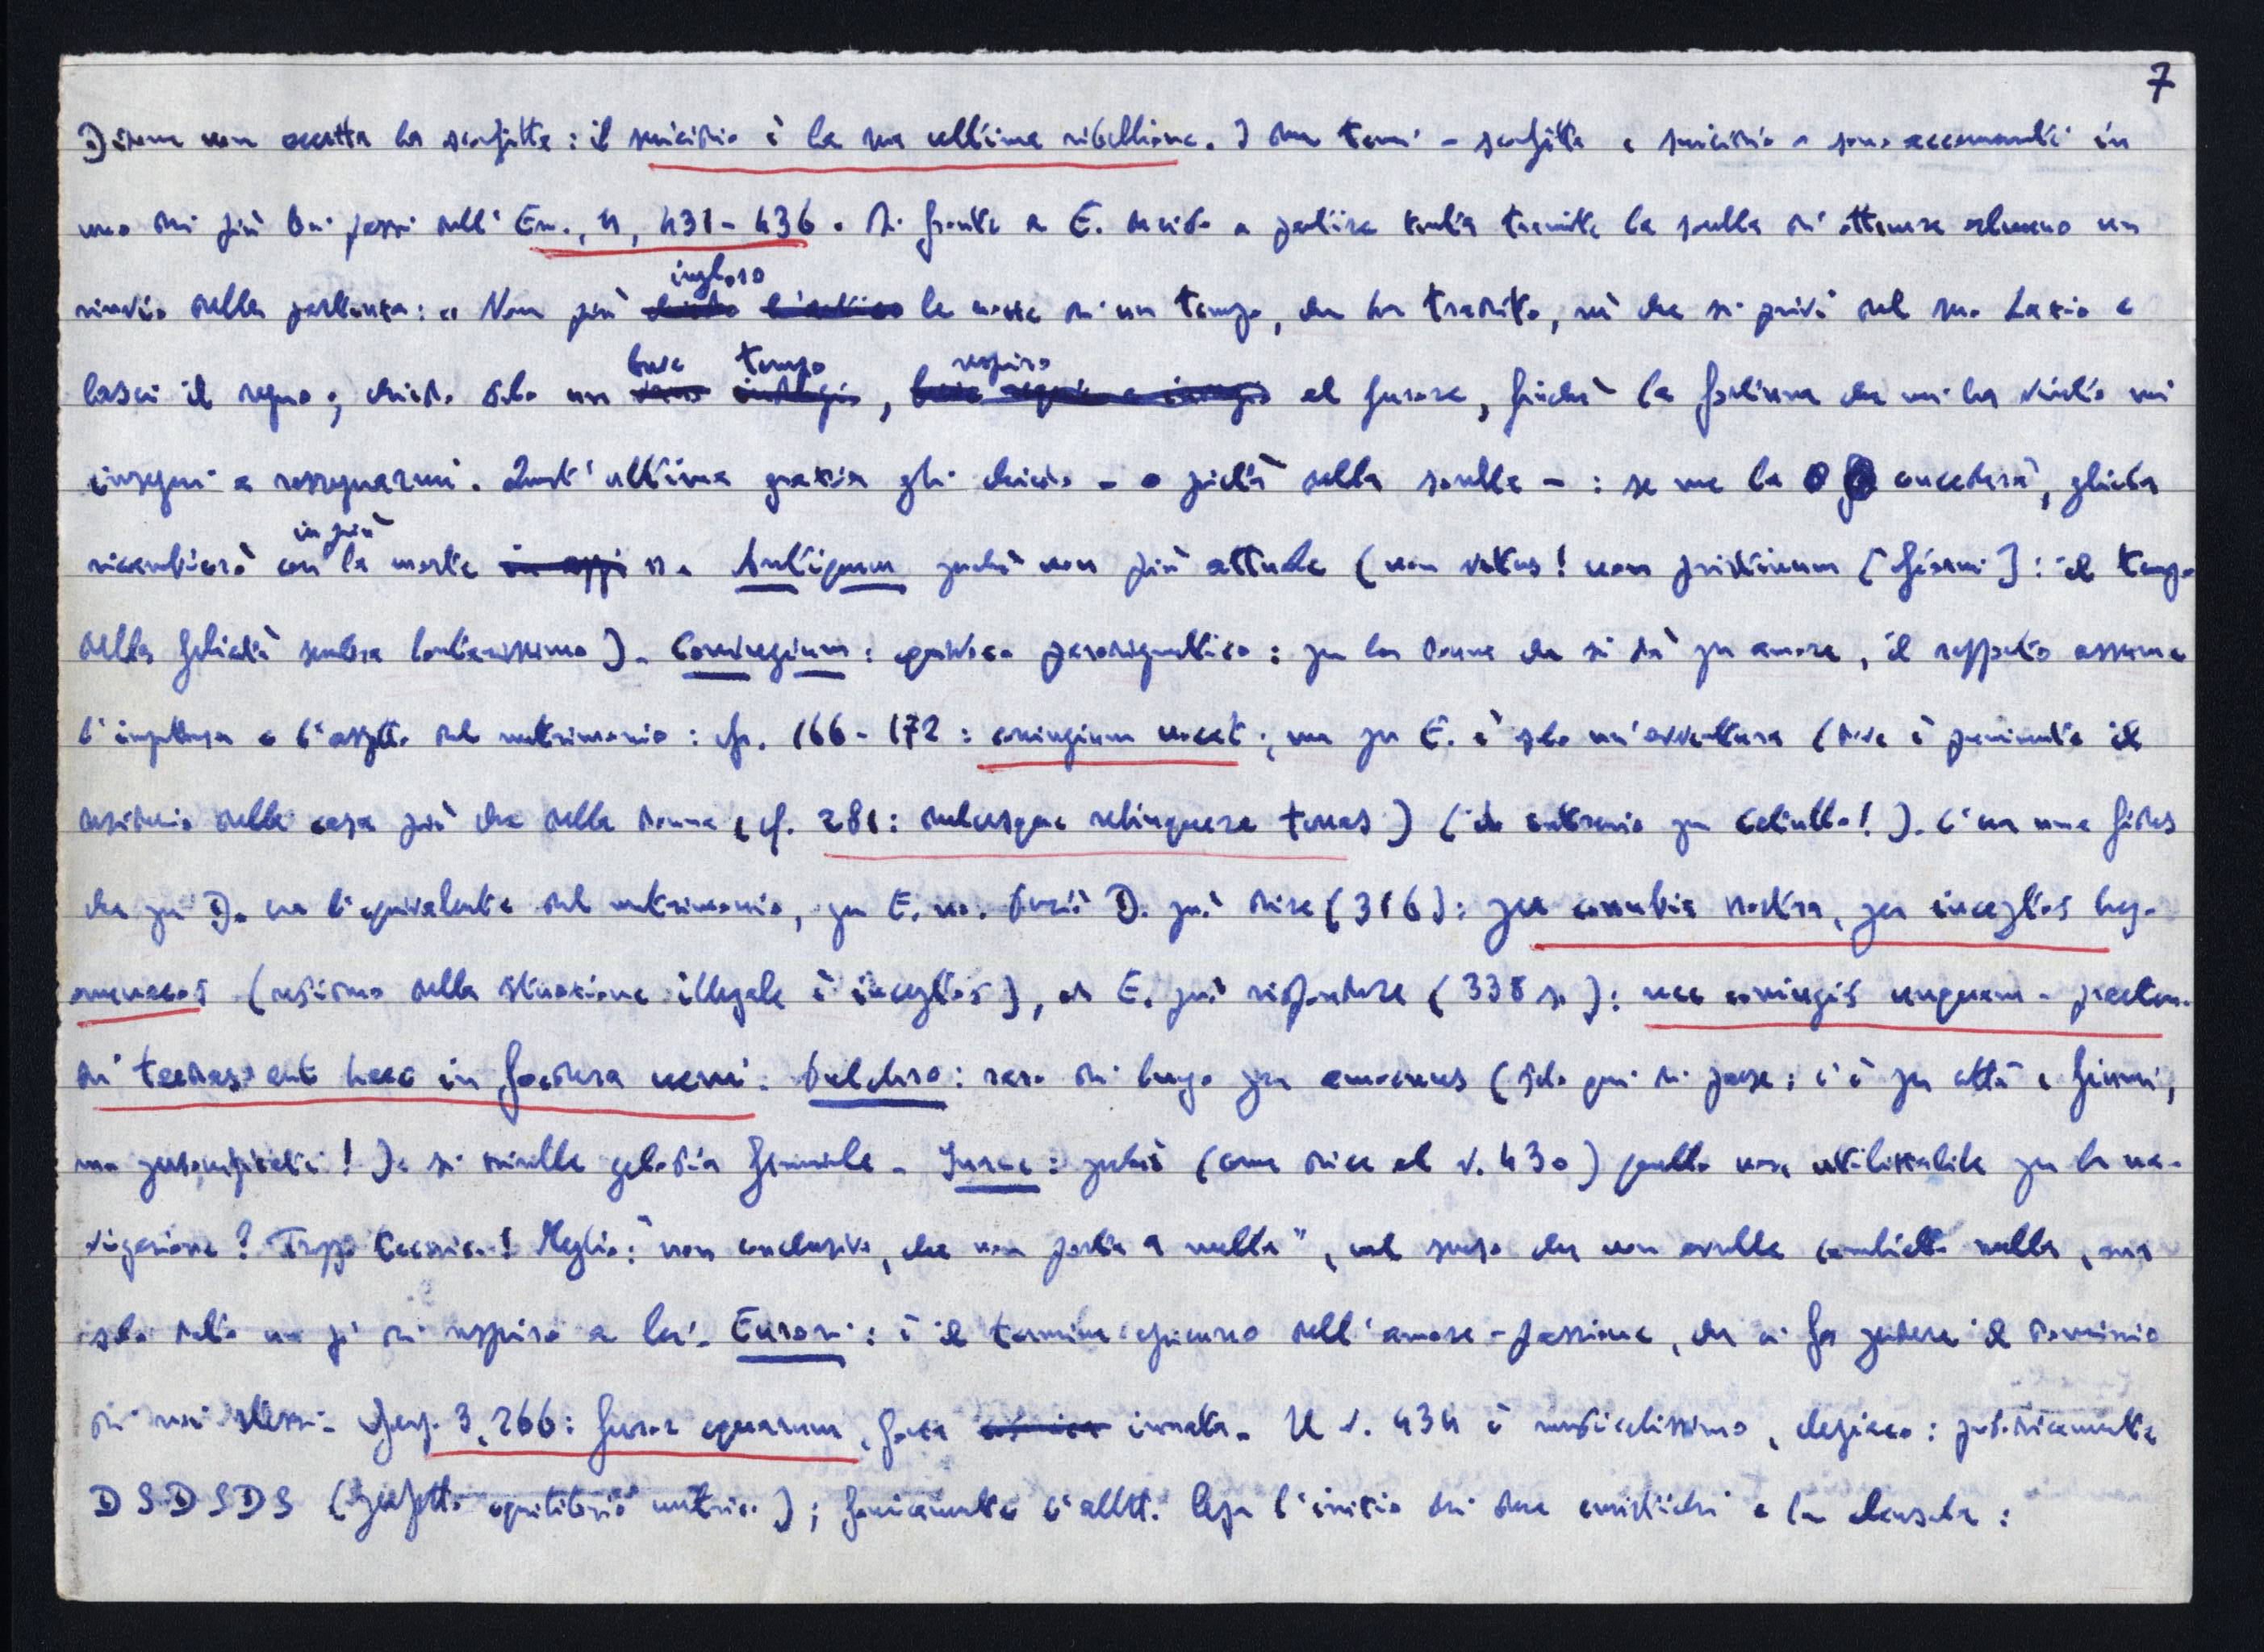 7
Didone non accetta la sconfitta: il suicidio è la sua ultima ribellione. I due temi - sconfitta e suicidio - sono accomunati in
uno dei più bei passi dell'En., 4, 431-436. Di fronte a E. deciso a partire tenta tramite la sorella di ottenere almeno un
rinvio della partenza: « Non più chiedo l'antico ingloro le nozze di un tempo, che ha tradito, né che si privi del suo Lazio e
lasci il regno; chiedo solo un breve tempo, respiro al furore, finché la fortuna che mi ha vinto mi
insegni a rassegnarmi. Quest'ultima grazia gli chiedo - o pietà della sorella - : se me la concederà, gliela
ricambierò con la morte in più ». Antiquum perché non più attuale (non vetus! non pristinum [ieri]: il tempo
della felicità sembra lontanissimo). Coniugium: equivoco paradigmatico: per la donna che si dà per amore, il rapporto assume
l'impegno e l'aspetto del matrimonio: cfr. 166-172: coniugium vocat; ma per E. è solo un'avventura (dove è preminente il
desiderio della casa più che della donna, cf. 281: dulcisque relinquere terras) (il contrario per Catullo!). C'era una fides
che per D. era l'equivalente del matrimonio, per E. no. Perciò D. può dire (316): per conubia nostra, per inceptos hyme-
omenaeos (residuo della situazione illegale è inceptos), ed E. può rispondere (338 s.): nec coniugis umquam - praeten-
di taedas aut haec in foedera veni. Pulchro: raro di luogo per amoenus (solo qui di paese: c'è per città e fiumi,
ma personificati!): si rivela gelosia femminile. Inane: perché (come dice al v. 430) quello non utilizzabile per la na-
vigazione? Troppo tecnico! Meglio: "non conclusivo, che non porta a nulla", nel senso che non avrebbe cambiato nulla, ma
solo dato un po' di respiro a lei. Furori: è il termine epicureo dell'amore-passione, che ci fa perdere il dominio
di noi stessi. Georg. 3, 266: furor equarum, forza innata. Il v. 434 è musicalissimo, elegiaco: prosodicamente
DSDSDS (perfetto equilibrio metrico); fonicamente l'allitt. lega l'inizio dei due emistichi e la clausola: